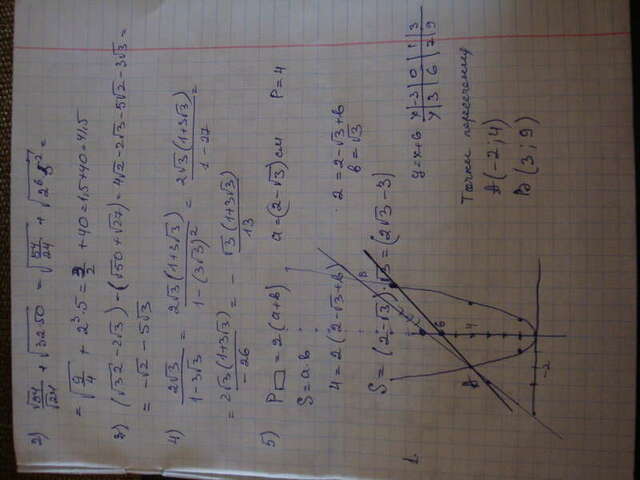 2) √54/√24 + √(32·50) = √(54/24) + √(2⁶·5²) =
= √(9/4) + 2³·5 = 3/2 + 40 = 1,5+40 = 41,5
3) (√32 - 2√3) - (√50 + √27) = 4√2 - 2√3 - 5√2 - 3√3 =
= -√2 - 5√3
4) 2√3/(1-3√3) = 2√3(1+3√3)/(1-(3√3)²) = 2√3(1+3√3)/(1-27) =
= 2√3(1+3√3)/(-26) = - √3(1+3√3)/13
5) P▭ = 2(a+b), a = (2-√3) см P = 4
S = a·b
4 = 2(2-√3+b) 2 = 2-√3+b
b = √3
S = (2-√3)·√3 = (2√3-3)
y = x+6
x | -3 | 0 | 1 | 3
y | 3 | 6 | 7 | 9
Точки пересечения
A (-2; 4)
B (3; 9)
B
6
4
A
-2